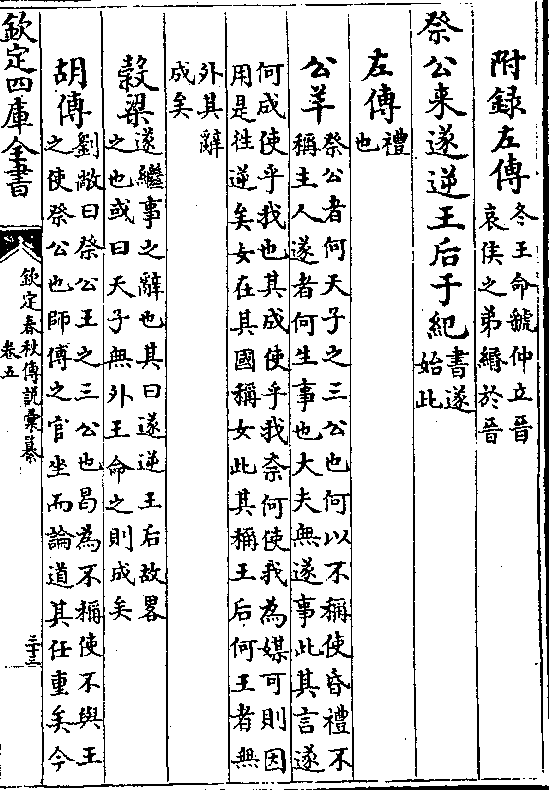 附録左傳冬王命虢仲立晉
哀侯之弟緡於晉
祭公来遂逆王后于紀書遂
始此
左傳禮
也
公羊祭公者何天子之三公也何以不稱使昏禮不
稱主人遂者何生事也大夫無遂事此其言遂
何成使乎我也其成使乎我奈何使我為媒可則因
用是徃逆矣女在其國稱女此其稱王后何王者無
外其辭
成矣
穀梁遂繼事之辭也其曰遂逆王后故畧
之也或曰天子無外王命之則成矣
胡傳劉敞曰祭公王之三公也曷為不稱使不與王
之使祭公也師傅之官坐而論道其任重矣今
欽定四庫全書
欽定春秋傳說彙纂
卷五
二十三